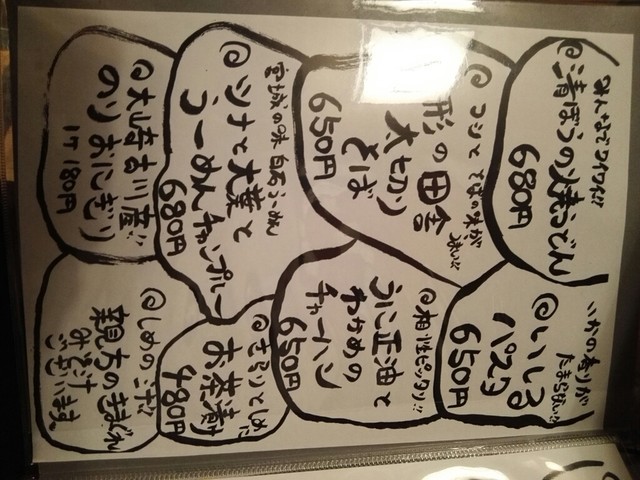 みんなでワイワイ!!
◎清ぼうの焼うどん
680円
◎コシとそばの味が
形の田舎
太切り
そば
650円
宮城の味 白石うーめん
◎ツナと大葉と
うーめんチャンプルー
680円
◎大崎古川産!!
のりおにぎり
1ケ 180円
いわの香りが
たまらない!!
◎いしる
パスタ
650円
◎相性ピッタリ!!
うに正油と
わかめの
チャーハン
650円
お茶漬け
480円
◎しめのコボ
親方のきまぐれ
みそ汁
ございます。